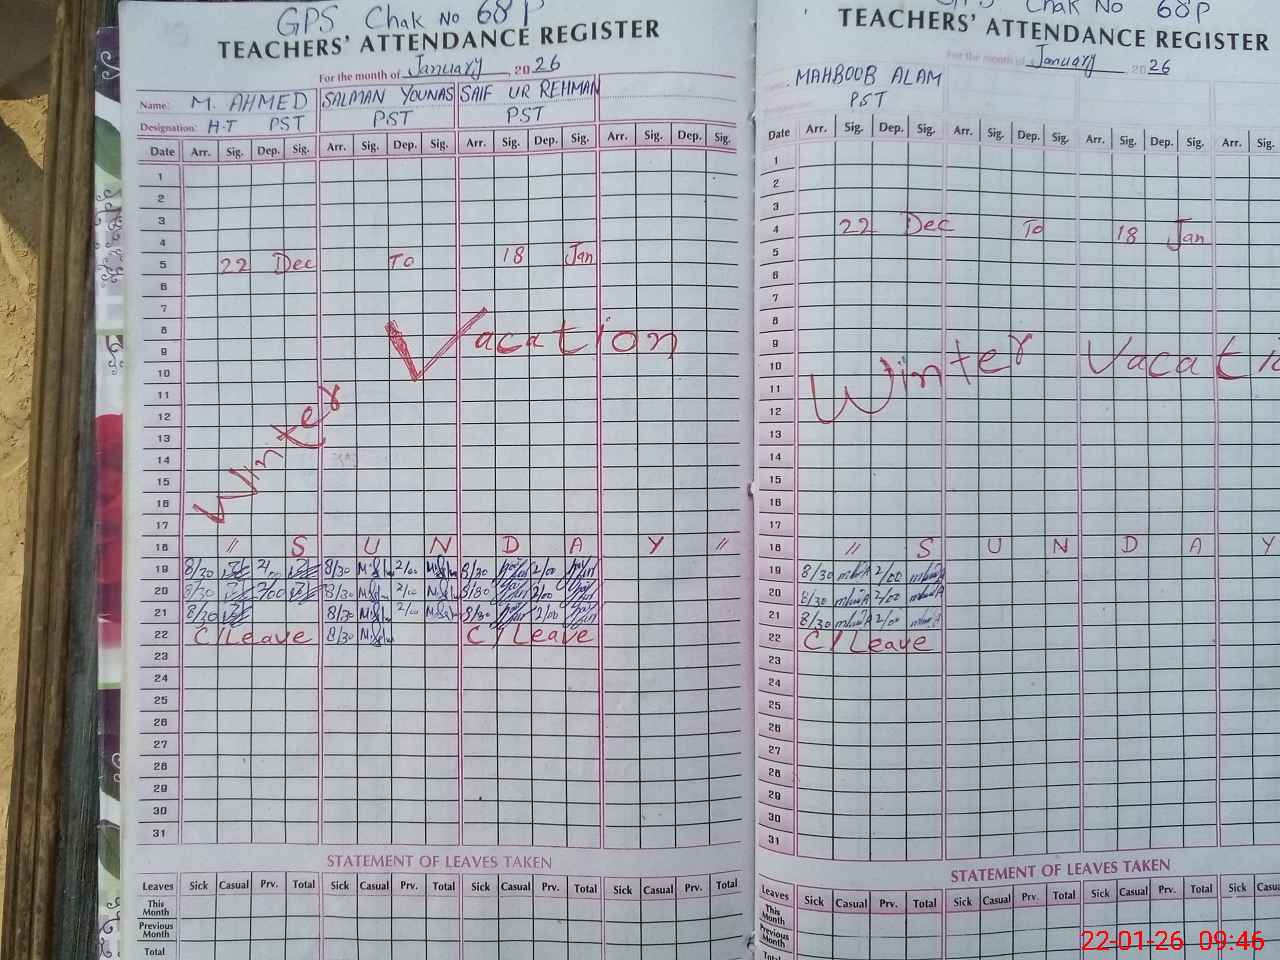 GPS Chak No 68P
TEACHERS' ATTENDANCE REGISTER
For the month of January, 2026
Name: M. AHMED SALMAN YOUNAS SAIF UR REHMAN
Designation: H.T PST PST PST
Date Arr. Sig. Dep. Sig. Arr. Sig. Dep. Sig. Arr. Sig. Dep. Sig. Arr. Sig. Dep. Sig.
1
2
3
4
5 22 Dec To 18 Jan
6
7
8
9
10
11
12
13
14
15
16
17
Winter Vacation
18 " S U N D A Y "
19 8/30 2/00 8/30 2/00 8/30 2/00
20 8/30 2/00 8/30 2/00 8/30 2/00
21 8/30 8/30 2/00 8/30 2/00
22 C/Leave 8/30 C/Leave
23
24
25
26
27
28
29
30
31
STATEMENT OF LEAVES TAKEN
Leaves Sick Casual Prv. Total Sick Casual Prv. Total Sick Casual Prv. Total Sick Casual Prv. Total
This Month
Previous Month
Total
Chak No 68P
TEACHERS' ATTENDANCE REGISTER
For the month of January, 2026
MAHBOOB ALAM
PST
Date Arr. Sig. Dep. Sig. Arr. Sig. Dep. Sig. Arr. Sig. Dep. Sig. Arr. Sig.
1
2
3
4 22 Dec To 18 Jan
5
6
7
8
9
10
11
12
13
14
15
16
17
Winter Vacati
18 " S U N D A Y
19 8/30 2/00
20 8/30 2/00
21 8/30 2/00
22 C/Leave
23
24
25
26
27
28
29
30
31
STATEMENT OF LEAVES TAKEN
Leaves Sick Casual Prv. Total Sick Casual Prv. Total Sick Casual Prv. Total Sick
This Month
Previous Month
Total
22-01-26 09:46